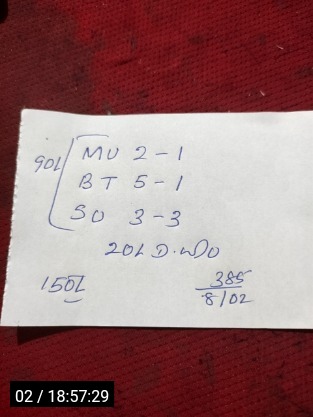 90L
MU 2-1
BT 5-1
SO 3-3
20L D.WO
150L
385
8/02
02 / 18:57:29